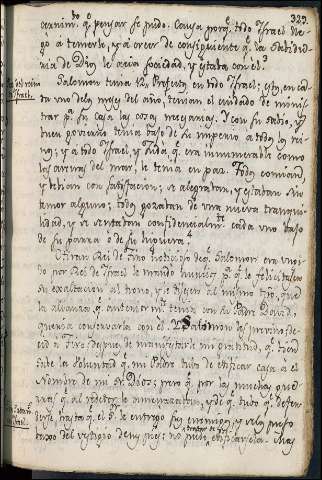 323.
q.e pensar se pudo. Causa porq.e todo Israel lle-
gó à temerlo, y à creer de consiguiente q.e la Sabidu-
ria de Dios le hacia sociedad, y estaba con el.
Salomon tenia 12 Prefectos en todo Israel; estos, en ca-
da uno de los meses del año, tenian el cuidado de minis-
trar p.a su Casa las cosas necesarias. Y con su sabio, y
buen govierno tenia bajo de su imperio à todos los rei-
nos; y à todo Israel, y Judà, q.e era innumerable como
las arenas del mar, le tenia en paz. Todos comian,
y bebian con satisfaccion; se alegraban, y estaban sin
temor alguno; todos gozaban de una nueva tranqui-
lidad, y se sentaban confidencialm.te cada uno bajo
de su parra ò de su higuera.
Hiran Rei de Tiro noticioso de q.e Salomon era ungi-
do por Rei de Israel le mandó p.a q.e le felicitasen
su exaltacion al trono, y le dijesen al mismo tpo, que
la alianza q.e anteriorm.te tenia con su Padre David,
queria conservarla con el. Salomon les previno, de-
cid à Tiro despues de manifestarle mi gratitud, q.e bien
sabe la voluntad q.e mi Padre tubo de edificar casa al
Nombre de mi S.r Dios; pero q.e por las muchas gue-
rras, q.e al rededor le amenazaban, y de q.e tubo q.e defen-
derse hasta q.e el S.r le entregó sus enemigos y los puso
bajo del vestigio de sus pies; no pudo edificarsela. Mas